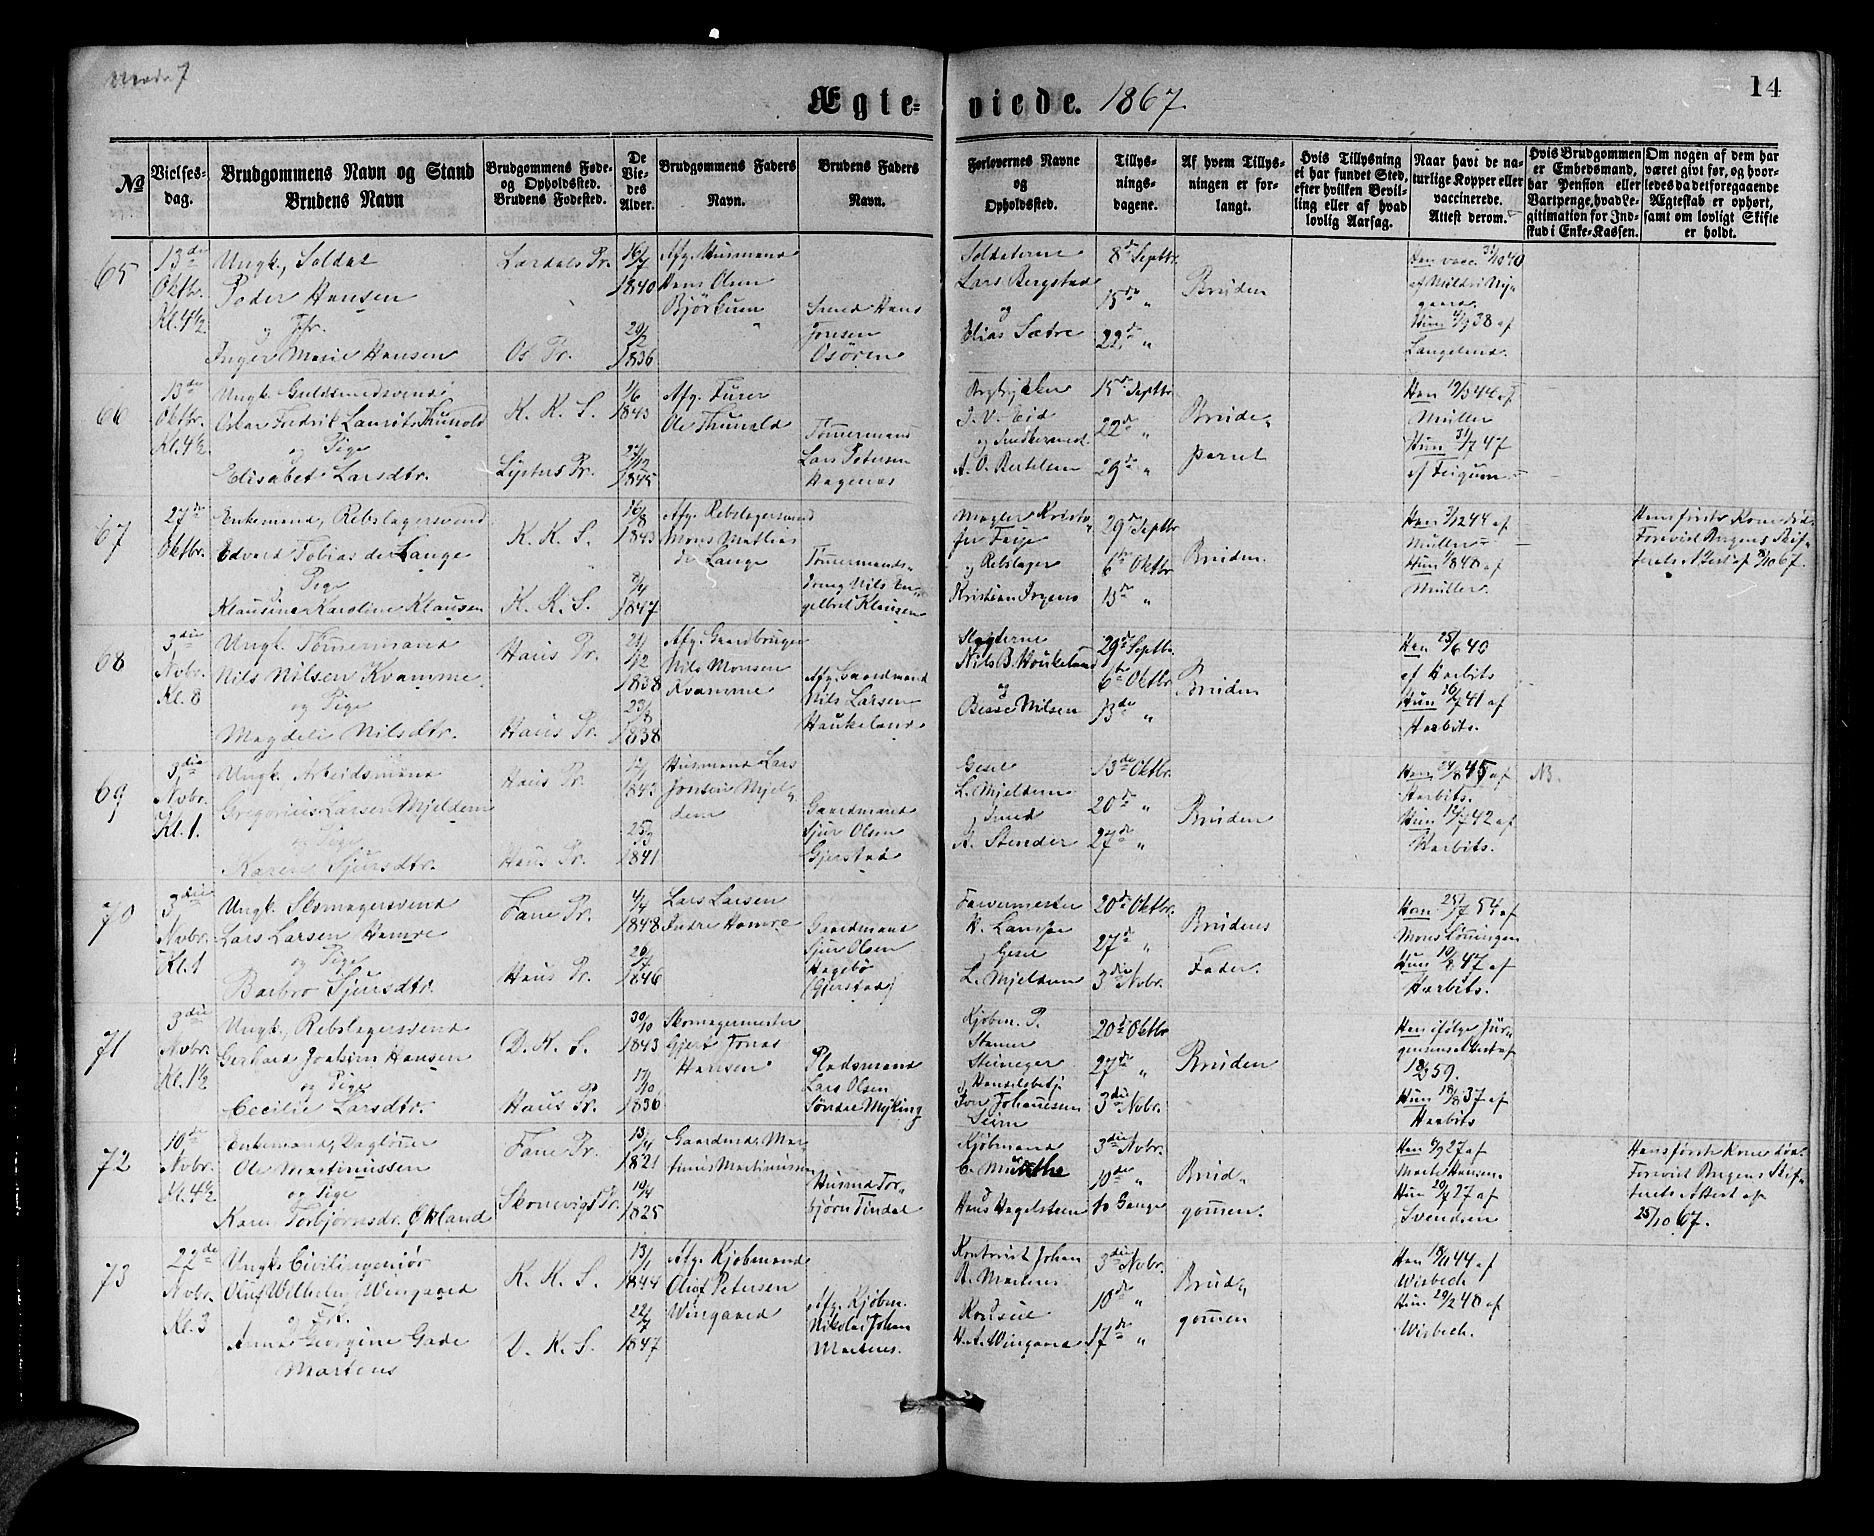 Ægte-
viede. 1867.
14
No
Vielses-
dag.
Brudgommens Navn og Stand
Brudens Navn
Brudgommens Føde-
og Opholdssted.
Brudens Fødested.
De
Vie-
des
Alder.
Brudgommens Faders
Navn.
Brudens Faders
Navn.
Forlovernes Navne
og
Opholdssted.
Tillys-
nings-
dagene.
Af hvem Tillys-
ningen er for-
langt.
Hvis Tillysning
ei har fundet Sted,
efter hvilken Bevil-
ling eller af hvad
lovlig Aarsag.
Naar havt de na-
turlige Kopper eller
vaccinerede.
Attest derom.
Hvis Brudgommen
er Embedsmand,
har Pension eller
Vartpenge, hvad Le-
gitimation for Ind-
skud i Enke-Kassen.
Om nogen af dem har
været gift før, og hvor-
ledes da det foregaaende
Ægteskab er ophørt,
samt om lovligt Skifte
er holdt.
65
13de
Oktbr.
Kl. 4½
Ungk., Soldat
Peder Hansen
og Jfr.
Inger Marie Hansen
Lærdals Pr.
Os Pr.
16/7
1840
29/2
1836
Afg. Husmand
Hans Olsen
Bjørkum
Smed Hans
Jonsen
Osøren
Soldaterne
Lars Bergstad
og
Elias Sætre
8de Septbr.
15de "
22de "
Bruden
Han vacc. 31/10 40
af Muldri Ny-
gaard.
Hun 4/9 38 af
Langeland.
66
13de
Oktbr.
Kl. 4½
Ungk. Guldsmedsvend
Oskar Fredrik Laurits Thunold
og Pige
Elisabet Larsdtr.
K. K. S.
Lysters Pr.
1/6
1843
27/12
1845
Afg. Furer
Ole Thunold
Tømermand
Lars Petersen
Hagenæs
Bogtrykker
J. V. Eid
og Snedkersvend
A. O. Bertelsen
15de Septbr.
22de "
29de "
Brude-
parret
Han 19/3 44 af
Müller
Hun 31/7 47
af Feigum
67
27de
Oktbr.
Enkemand, Rebslagersvend
Edvard Tobias de Lange
og Pige
Klausine Karoline Klausen
K. K. S.
K. K. S.
16/8
1843
8/4
1847
Afg. Rebslagersvend
Mons Mathias
de Lange
Tømermands-
dreng Nils En-
gelbret Klausen
Mægler Kristo-
fer Faye
og Rebslager
Kristian Irgens
29de Septbr.
6te Oktbr.
13de "
Bruden.
Han 3/12 44 af
Müller
Hun 1/8 48 af
Müller.
Hans første Kone død
Forevist Bergens Skif-
terets Attest af 8/10 67.
68
3die
Novbr.
Kl. 8
Ungk. Tømermand
Nils Nilsen Kvamme
og Pige
Magdeli Nilsdtr.
Haus Pr.
Haus Pr.
21/12
1838
23/8
1838
Afg. Gaardbruger
Nils Monsen
Kvamme
Afg. Gaardmand
Nils Larsen
Haukeland.
Slagterne
Nils B. Houkeland
og
Besse Nilsen
29de Septbr.
6te Oktbr.
13de "
Bruden
Han 25/6 40
af Harbits
Hun 16/7 41 af
Harbits.
69
3die
Novbr.
Kl. 1.
Ungk. Arbeidsmand
Gregorius Larsen Mjeldem
og Pige
Karen Sjursdtr.
Haus Pr.
Haus Pr.
1843
25/3
1841
Husmand Lars
Jonsen Mjel-
dem
Gaardmand
Sjur Olsen
Gjerstad
Gesel
L. Mjeldem
og Smed
A. Stender
13de Oktbr.
20de "
27de "
Bruden
Han 24/8 45 af
Harbits.
Hun 12/7 42 af
Harbits.
NB.
70
3die
Novbr.
Kl. 1
Ungk. Skomagersvend
Lars Larsen Hamre
og Pige
Barbro Sjursdtr.
Fane Pr.
Haus Pr.
4/4
1848
29/7
1846
Lars Larsen
Indre Hamre
Gaardmand
Sjur Olsen
Hagebø
(Gjerstad)
Farvermester
W. Lampe
og Gesel
L. Mjeldem
20de Oktbr.
27de "
3die Novbr.
Brudens
Fader.
Han 25/7 54 af
Mons Lønningen
Hun 19/8 47 af
Harbits.
71
3die
Novbr.
Kl. 1½
Ungk., Rebslagersvend
Gerhard Joakim Hansen
og Pige
Cecilie Larsdtr.
D. K. S.
Haus Pr.
30/10
1843
17/10
1836
Skomagermester
Gjert Jonas
Hansen
Pladsmand
Lars Olsen
Søndre Myking
Kjøbm. P.
Steineger
og Handelsbetj.
Iver Johanesen
Seim
20de Oktbr.
27de "
3die Novbr.
Bruden
Han ifølge Jür-
gensens Attest af
1859.
Hun 18/8 37 af
Harbits
72
10de
Novbr.
Kl. 4½
Enkemand, Dagløner
Ole Martinussen
og Pige
Kari Torbjørnsdr. Økland
Fane Pr.
Skonevigs Pr.
13/4
1821
19/4
1825
Gaardmd. Mar-
tinus Martinussen
Husmd Tor-
bjørn Tindal
Kjøbmand
C. Munthe
og
Hans Hagelsteen
3die Novbr.
10de "
to Gange
Brud-
gomen.
Han 6/9 27 af
Morte Hansen
Hun 20/7 27 af
Svendsen
Hans første Kone død
Forevist Bergens Skif-
terets Attest af
25/10 67.
73
22de
Novbr.
Kl. 3
Ungk. Civilingeniør
Oluf Wilhelm Wingaard
og Frk.
Anna Georgine Gade
Martens
K. K. S.
D. K. S.
13/1
1844
22/7
1847
Afg. Kjøbmand
Oluf Petersen
Wingaard
Afg. Kjøbm.
Nikolai Johan
Martens.
Kontorist Johan
A. Martens
Konsul
H. A. Wingaard
3die Novbr.
10de "
17de "
Brud-
gomen
Han 18/11 44 af
Wisbech
Hun 29/2 48 af
Wisbech.